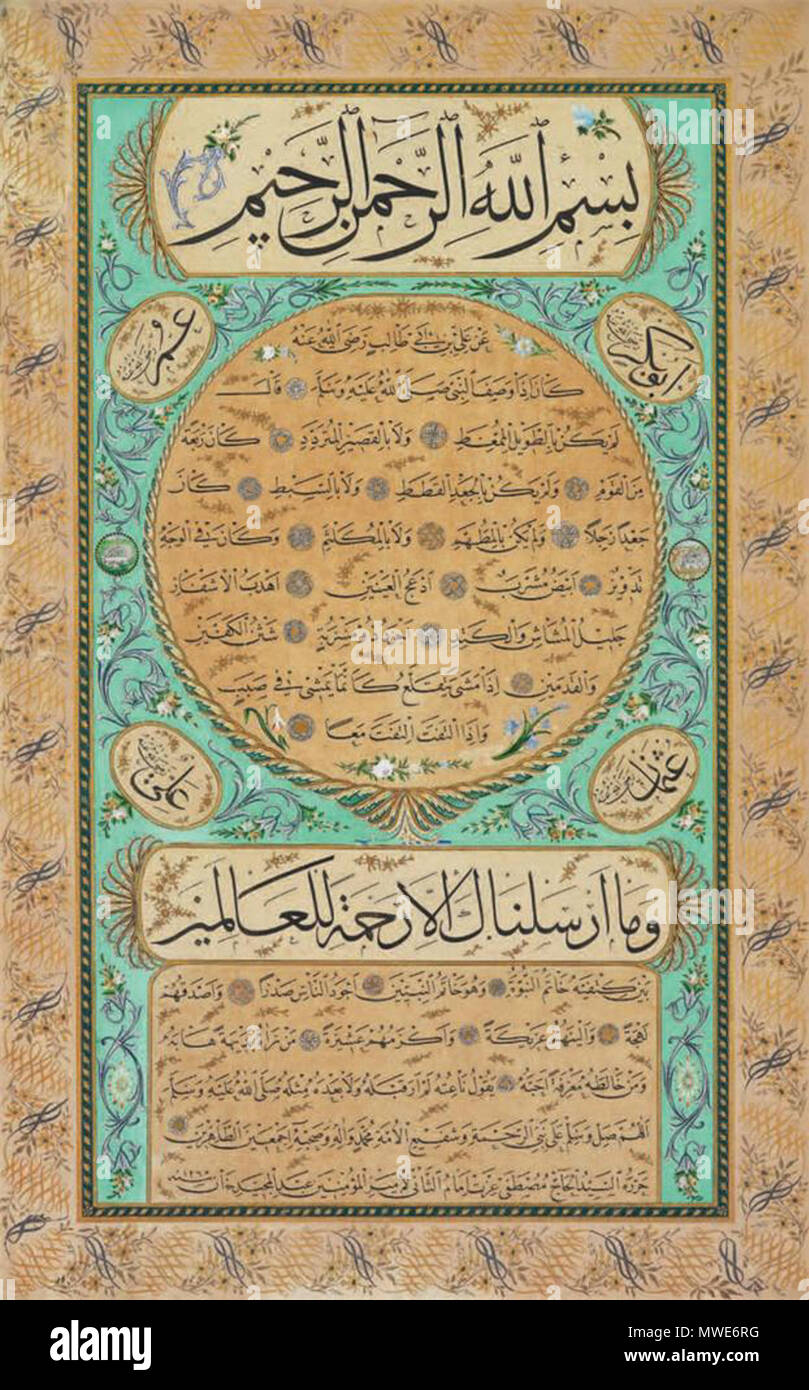 بِسْمِ اللّٰهِ الرَّحْمٰنِ الرَّحِيمِ
ابو بكر
عمر
عن علي بن ابي طالب رضي الله عنه
كان اذا وصف النبي صلى الله عليه وسلم قال
لم يكن بالطويل الممغط ولا بالقصير المتردد كان ربعة
من القوم ولم يكن بالجعد القطط ولا بالسبط كان
جعدا رجلا ولم يكن بالمطهم ولا بالمكلثم وكان في الوجه
تدوير ابيض مشرب ادعج العينين اهدب الاشفار
جليل المشاش والكتد اجرد ذو مسربة شثن الكفين
والقدمين اذا مشى يتقلع كانما يمشي في صبب
واذا التفت التفت معا
عثمان
علي
وما ارسلناك الا رحمة للعالمين
بين كتفيه خاتم النبوة وهو خاتم النبيين اجود الناس صدرا واصدقهم
لهجة والينهم عريكة واكرمهم عشيرة من رآه بديهة هابه
ومن خالطه معرفة احبه يقول ناعته لم ار قبله ولا بعده مثله صلى الله عليه وسلم
اللهم صل وسلم على نبي الرحمة وشفيع الامة محمد واله وصحبه اجمعين الطاهرين
حرره السيد الحاج مصطفى عزت امام الثاني امير المؤمنين عبد المجيد خان
alamy
alamy stock photo
MWE6RG
www.alamy.com